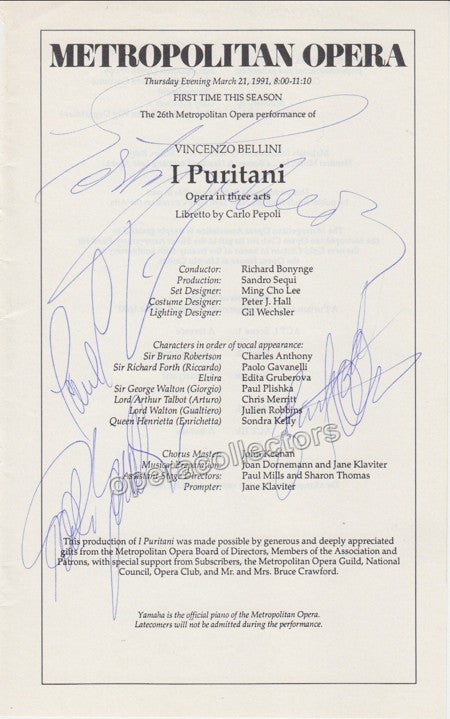 METROPOLITAN OPERA
Thursday Evening March 21, 1991, 8:00-11:10
FIRST TIME THIS SEASON
The 26th Metropolitan Opera performance of
VINCENZO BELLINI
I Puritani
Opera in three acts
Libretto by Carlo Pepoli
Conductor: Richard Bonynge
Production: Sandro Sequi
Set Designer: Ming Cho Lee
Costume Designer: Peter J. Hall
Lighting Designer: Gil Wechsler
Characters in order of vocal appearance:
Sir Bruno Robertson Charles Anthony
Sir Richard Forth (Riccardo) Paolo Gavanelli
Elvira Edita Gruberova
Sir George Walton (Giorgio) Paul Plishka
Lord Arthur Talbot (Arturo) Chris Merritt
Lord Walton (Gualtiero) Julien Robbins
Queen Henrietta (Enrichetta) Sondra Kelly
operacollectors
Chorus Master: John Keenan
Musical Preparation: Joan Dornemann and Jane Klaviter
Assistant Stage Directors: Paul Mills and Sharon Thomas
Prompter: Jane Klaviter
This production of I Puritani was made possible by generous and deeply appreciated
gifts from the Metropolitan Opera Board of Directors, Members of the Association and
Patrons, with special support from Subscribers, the Metropolitan Opera Guild, National
Council, Opera Club, and Mr. and Mrs. Bruce Crawford.
Yamaha is the official piano of the Metropolitan Opera.
Latecomers will not be admitted during the performance.